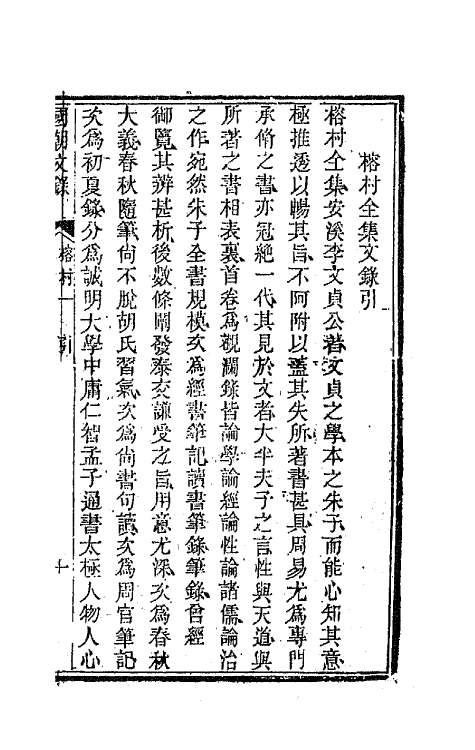 榕村全集文錄引
榕村全集安溪李文貞公著文貞之學本之朱子而能心知其意
極推透以暢其旨不阿附以蓋其失所著書甚具周易尤爲專門
承脩之書亦冠絶一代其見於文者大半夫子之言性與天道與
所著之書相表裏首卷爲觀瀾錄皆論學論經論性論諸儒論治
之作宛然朱子全書規模次爲經書筆記讀書筆錄筆錄曾經
御覽其辨甚析後數條闡發泰交謙受之旨用意尤深次爲春秋
大義春秋隨筆尙不脫胡氏習氣次爲尙書句讀次爲周官筆記
次爲初夏錄分爲誠明大學中庸仁智孟子通書太極人物人心
國朝文錄 榕村一 引 十